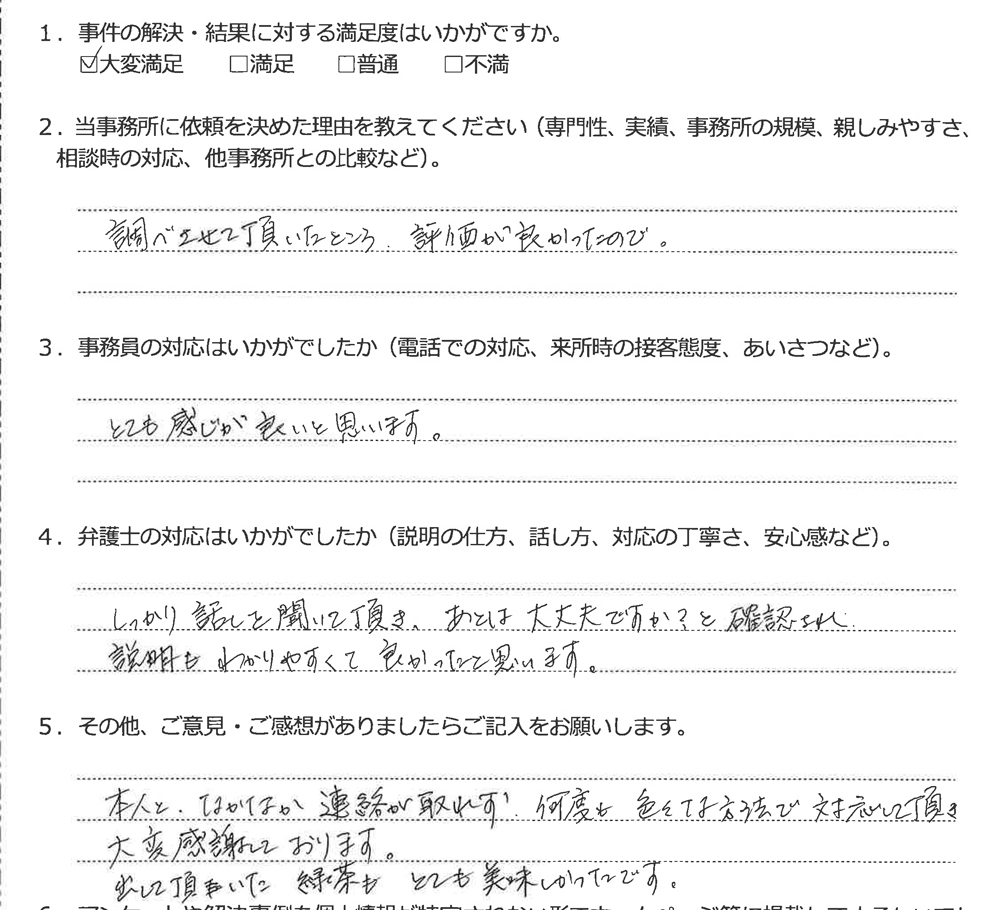 1．事件の解決・結果に対する満足度はいかがですか。
☑大変満足　□満足　□普通　□不満
2．当事務所に依頼を決めた理由を教えてください（専門性、実績、事務所の規模、親しみやすさ、
相談時の対応、他事務所との比較など）。
調べさせて頂いたところ、評価が良かったので。
3．事務員の対応はいかがでしたか（電話での対応、来所時の接客態度、あいさつなど）。
とても感じが良いと思います。
4．弁護士の対応はいかがでしたか（説明の仕方、話し方、対応の丁寧さ、安心感など）。
しっかり話しを聞いて頂き、あとは大丈夫ですか?と確認され
説明もわかりやすくて良かったと思います。
5．その他、ご意見・ご感想がありましたらご記入をお願いします。
本人と、なかなか連絡が取れず、何度も色々な方法で対応して頂き
大変感謝しております。
出して頂いた緑茶もとても美味しかったです。